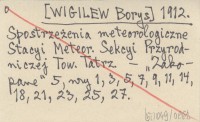 [WIGILEW Borys] 1912.
Spostrzeżenia meteorologiczne
Stacyi Meteor. Sekcyi Przyrod-
niczej Tow. Tatrz - "Zako-
pane" 5, nry 1, 3, 5, 7, 9, 11, 14,
18, 21, 23, 25, 27.